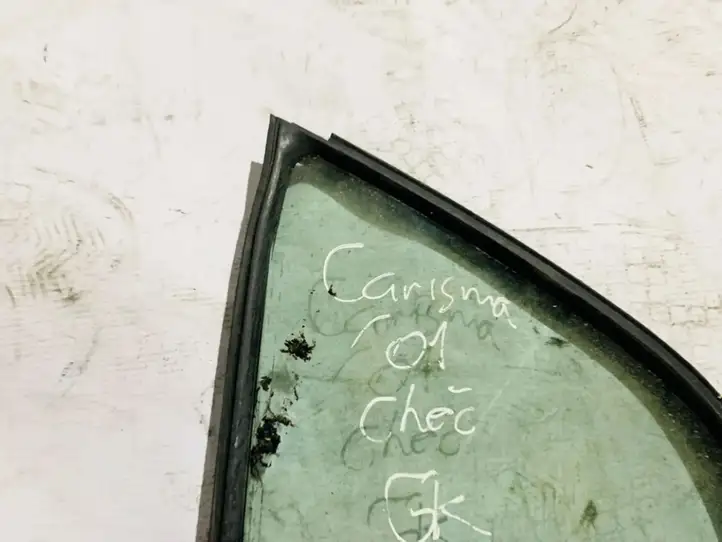 Carisma
'01
Cheč
GK